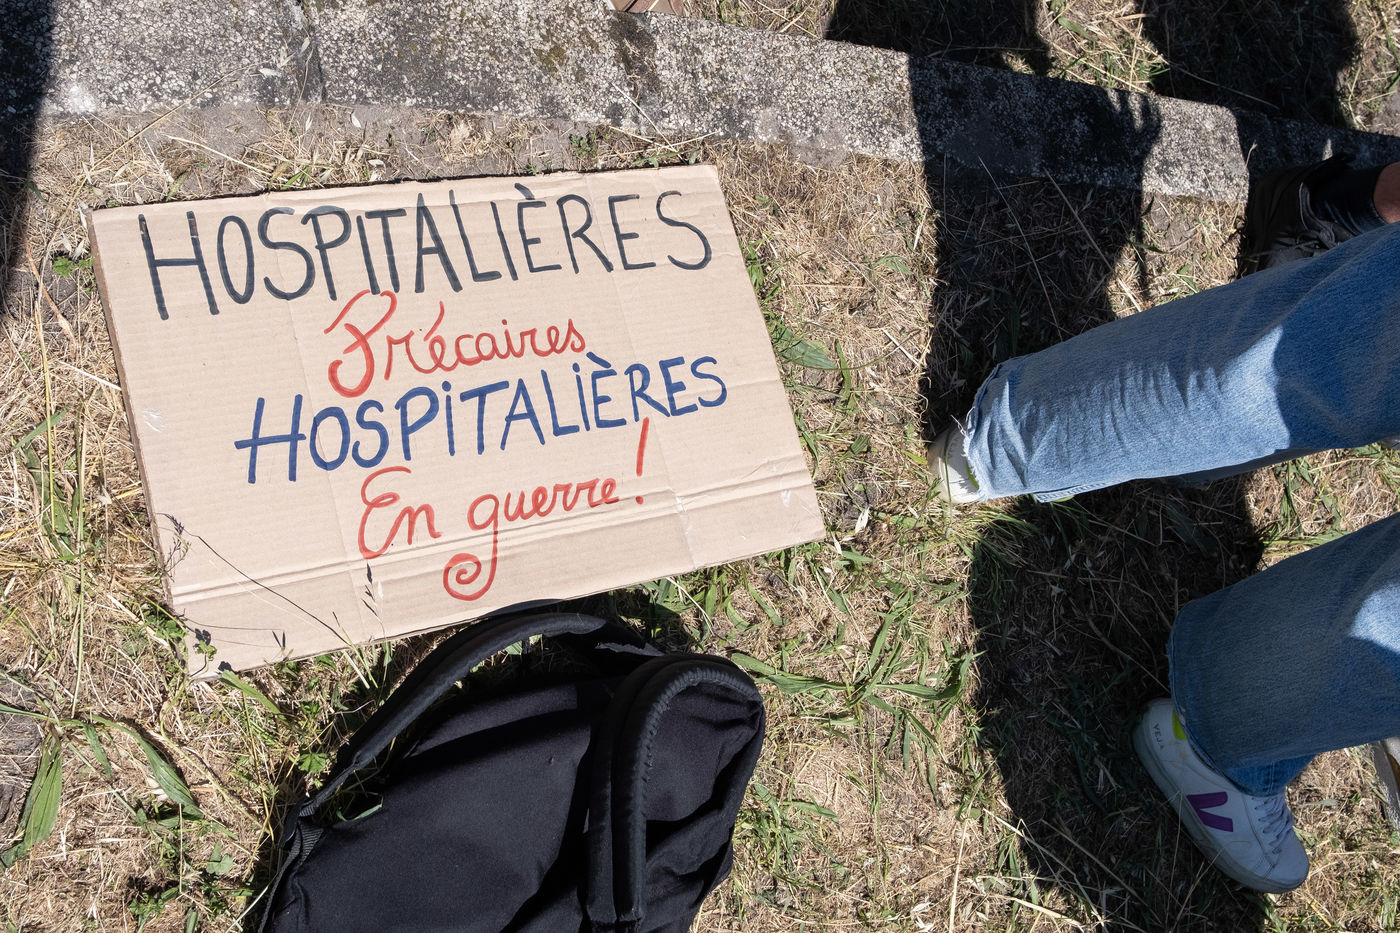 HOSPITALIÈRES
Précaires
HOSPITALIÈRES
En guerre !
VEJA